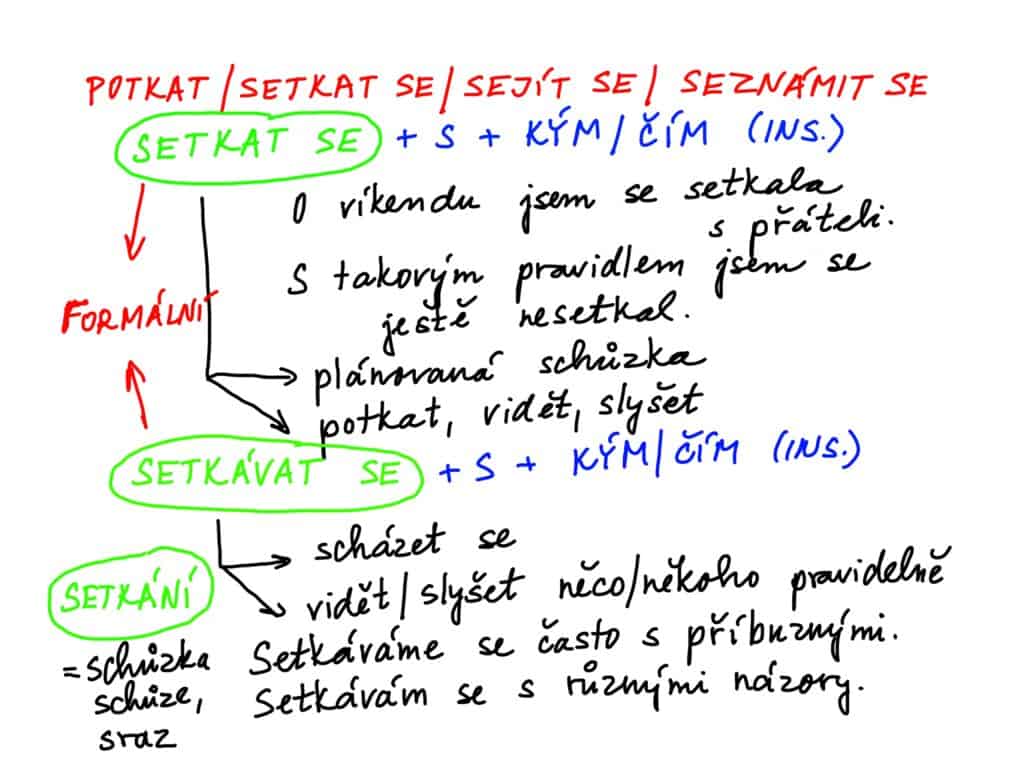 POTKAT/SETKAT SE/SEJÍT SE/ SEZNÁMIT SE
SETKAT SE + S + KÝM/ČÍM (INS.)
O víkendu jsem se setkala
s přáteli.
S takovým pravidlem jsem se
ještě nesetkal.
FORMÁLNÍ
plánovaná schůzka
potkat, vidět, slyšet
SETKÁVAT SE + S + KÝM/ČÍM (INS.)
scházet se
vidět/slyšet něco/někoho pravidelně
SETKÁNÍ
=schůzka
schůze,
sraz
Setkáváme se často s příbuznými.
Setkávám se s různými názory.